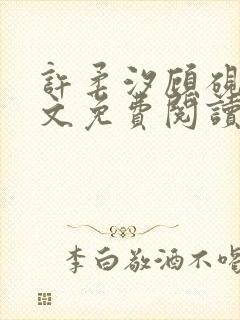 許柔汐顧硯
文免費閱讀
李白敬酒不喝